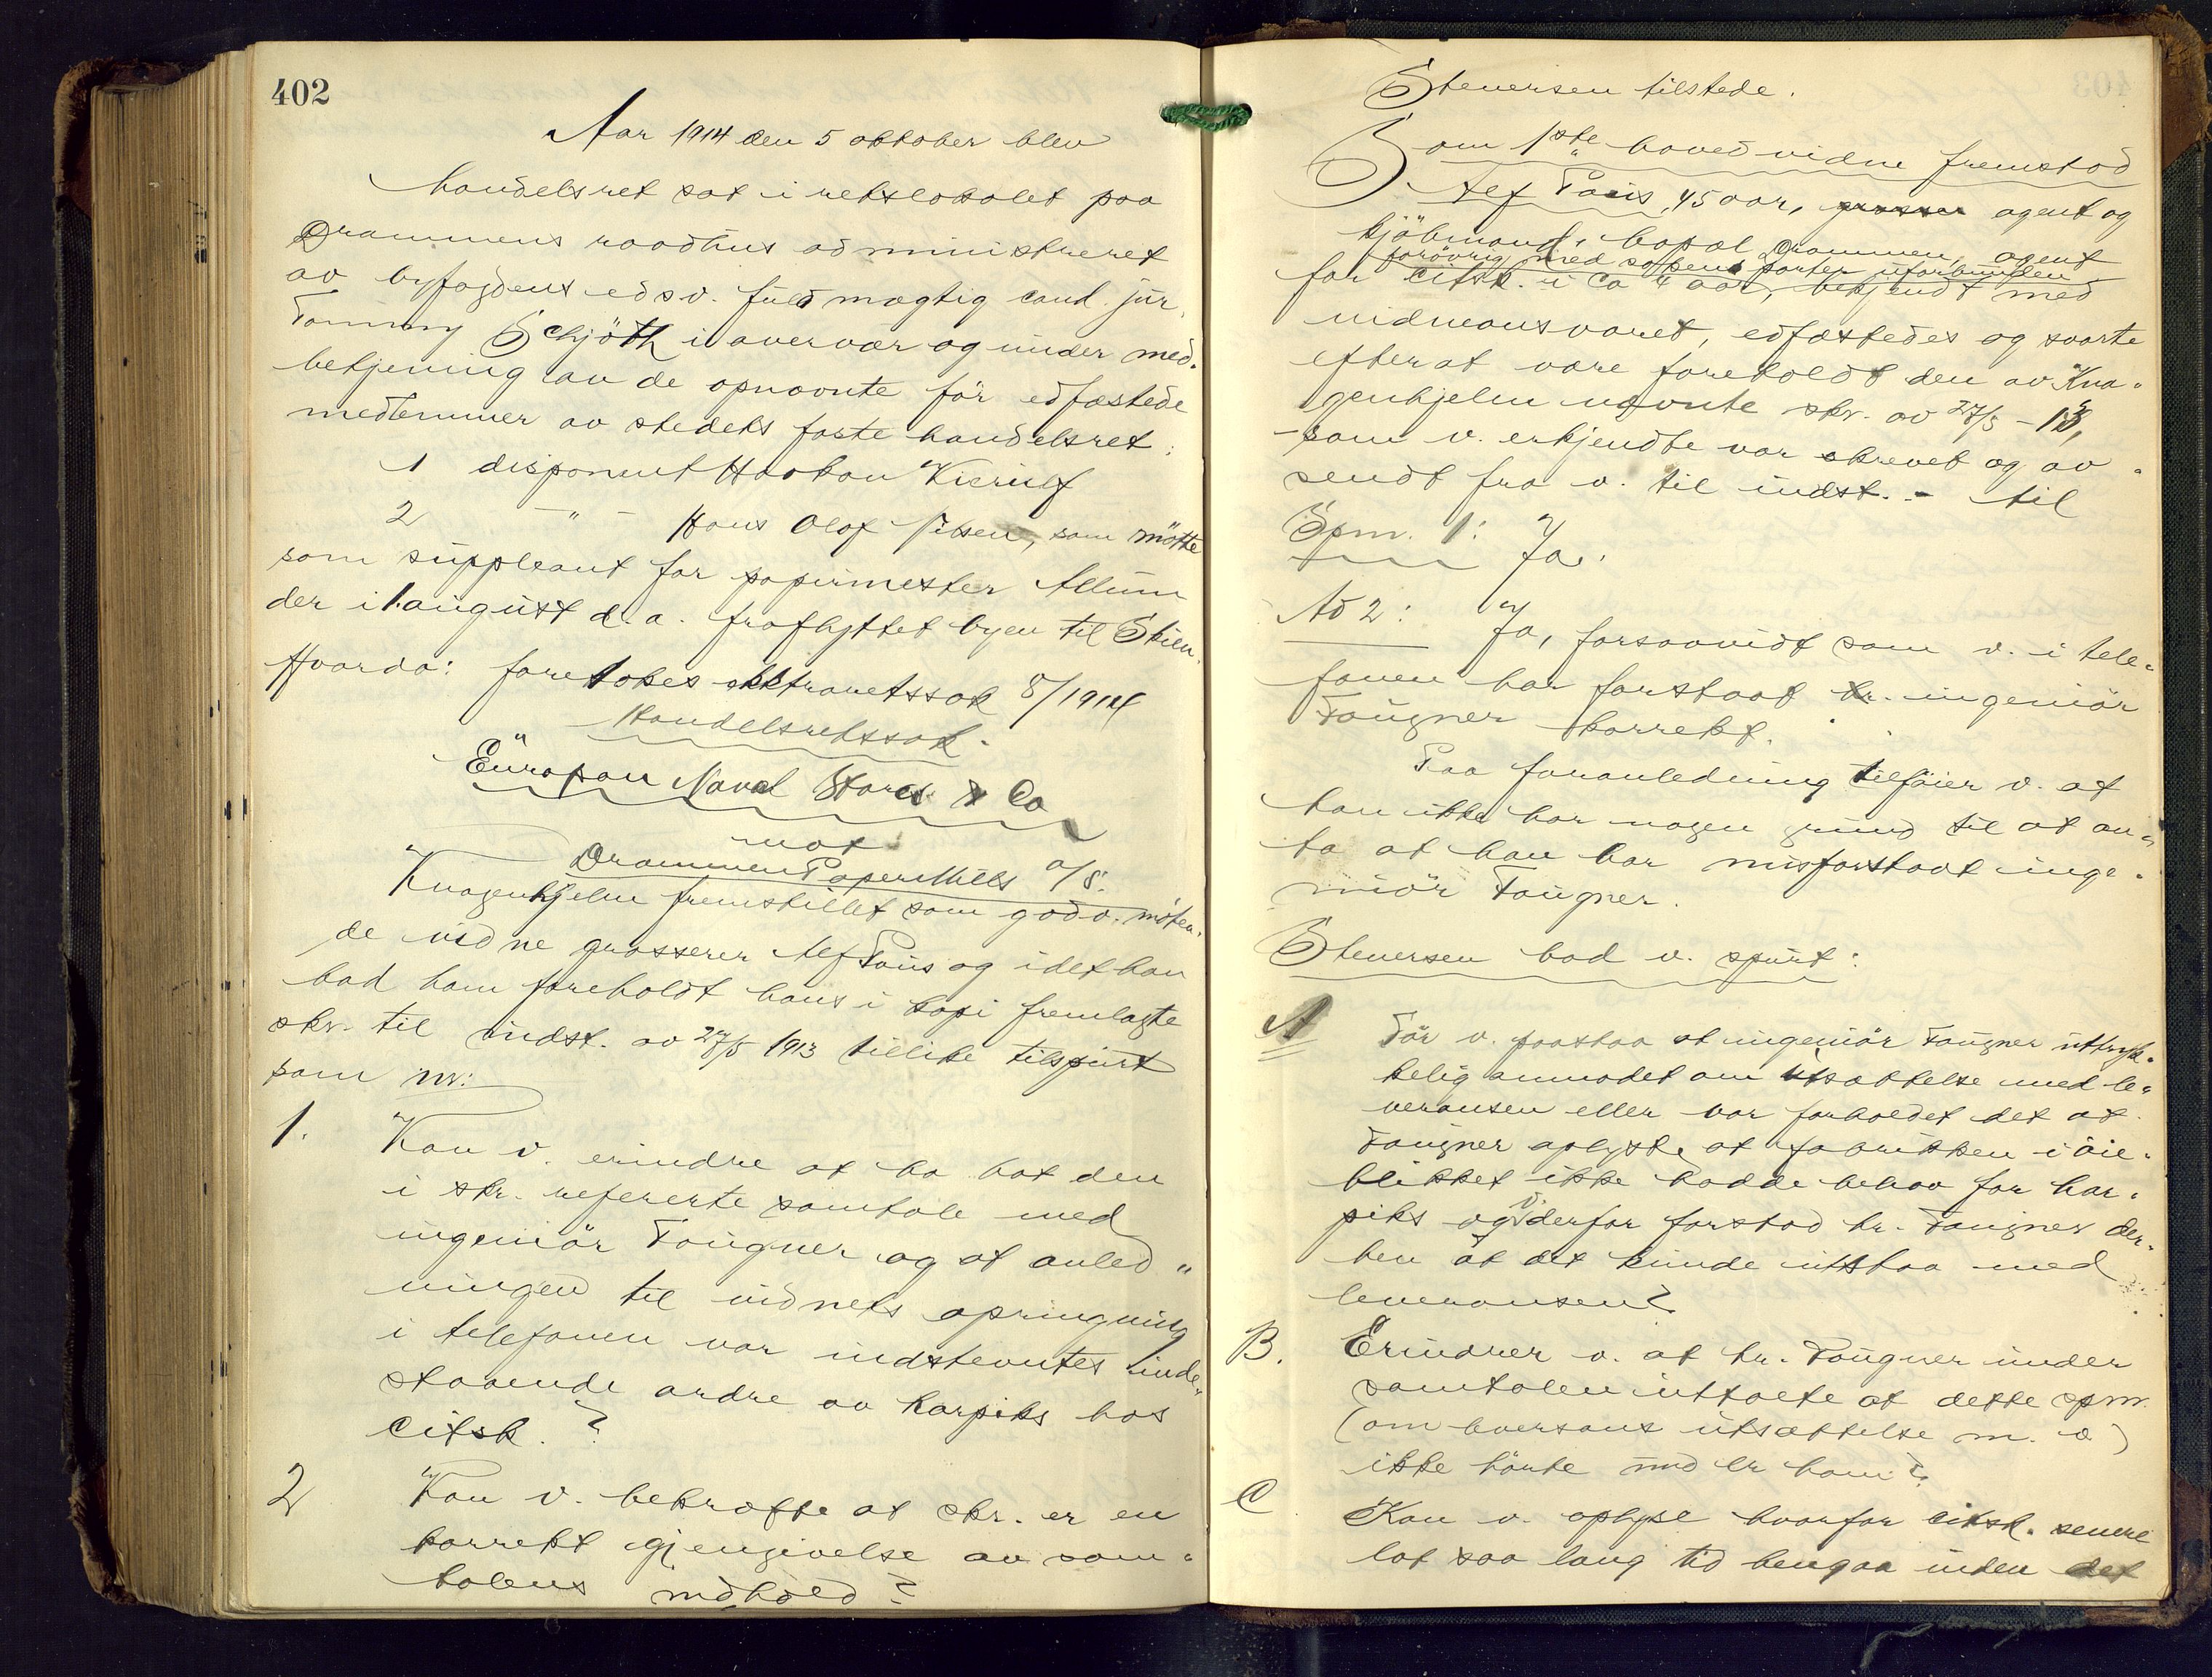 402
Aar 1914 den 5 oktober blev
handelsret sat i retslokalet paa
Drammens raadhus administreret
av byfogdens edsv. fuldmægtig cand. jur.
Tommy Schjöth i overvær og under med-
betjening av de opnævnte før edfæstede
medlemmer av stedets faste handelsret:
1 disponent Haakon Kierulf
2 -"- Hans Olaf Ibsen, som mötte
som suppleant for papirmester Allum
der i 1. august d. a. fraflyttet byen til Skien.
Hvorda: foretokes ekstraretssak 8/1914
Handelsretssak.
Europan Naval Stores & Co
mot
Drammen Paper Mills a/s.
Knagenhjelm fremstillet som godv. möten-
de vidne grosserer Alf Paus og idet han
bad ham foreholdt hans i kopi fremlagte
skr. til indst. av 27/5 1913 tillike tilspurt
som nr:
1. Kan v. erindre at ha hat den
i skr. refererte samtale med
ingeniör Fougner og at anled"
ningen til vidnets opringning
i telefonen var indstevntes inde-
staaende ordre av harpiks hos
citsk. ?
2 Kan v. bekræfte at skr. er en
korrekt gjengivelse av sam-
talens indhold ?
Stenersen tilstede.
Som 1ste hovedvidne fremstod
Alf Paus, 45 aar, grosser agent og
kjöbmand, bopæl Drammen, agent
forøvrig med sakens parter uforbunden
for citsk. i ca 4 aar, bekjendt med
vidneansvaret, edfæstedes og svarte
efter at være foreholdt den av Kna-
genhjelm nævnte skr. av 27/5 - 13,
- som v. erkjendte var skrevet og av-
sendt fra v. til indst. - til
Spm. 1: Ja.
Ad 2: Ja, forsaavidt som v. i tele-
fonen har forstaat hr. ingeniör
Fougner korrekt.
Paa foranledning tilföier v. at
han ikke har nogen grund til at an-
ta at han har misforstaat inge-
niör Fougner.
Stenersen bad v. spurt:
A Tör v. paastaa at ingeniör Fougner uttryk-
kelig anmodet om utsættelse med le-
veransen eller var forholdet det at
Fougner oplyste at fabrikken i öie-
blikket ikke hadde behov for har-
piks og v. derfor forstod hr. Fougner der-
hen at det kunde utstaa med
leveransen?
B. Erindrer v. at hr. Fougner under
samtalen uttalte at dette spm.
(om leveransens utsættelse m. v.)
ikke hörte ind under ham?
C Kan v. oplyse hvorfor citsk. senere
lot saa lang tid hengaa inden det